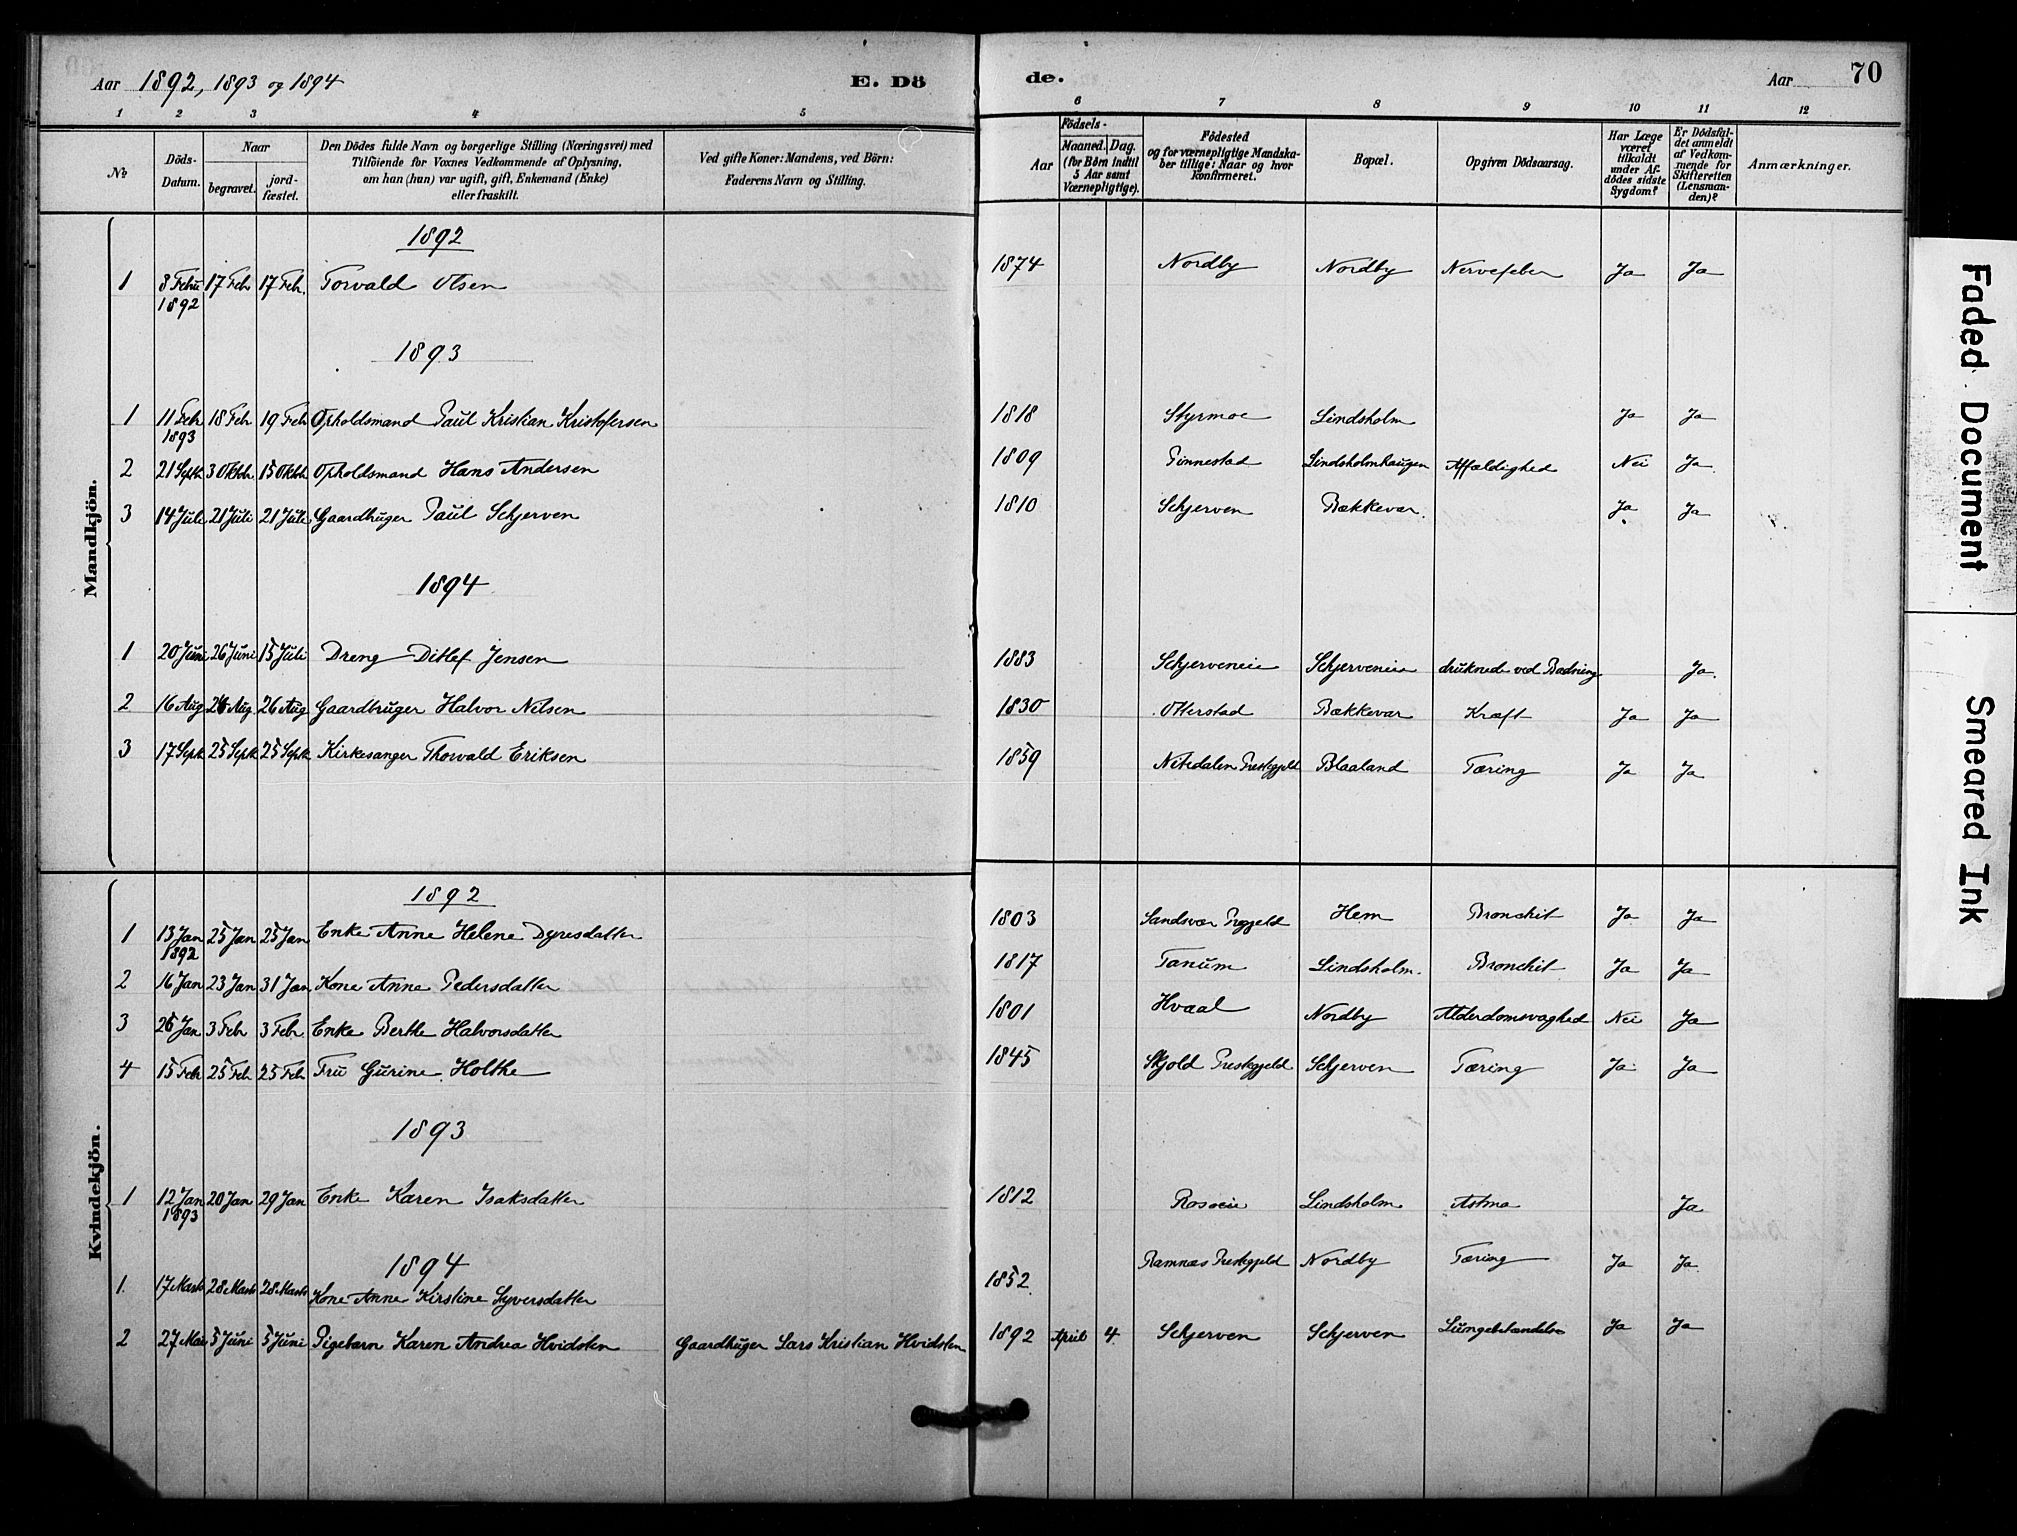 Aar 1892, 1893 og 1894 E. Dö
de. Aar 70
1 2 3 4 5 6 7 8 9 10 11 12
№
Döds-Datum.
Naar
begravet.
jord-fæstet.
Den Dödes fulde Navn og borgerlige Stilling (Næringsvei) med
Tilföiende for Voxnes Vedkommende af Oplysning,
om han (hun) var ugift, gift, Enkemand (Enke)
eller fraskilt.
Ved gifte Koner: Mandens, ved Börn:
Faderens Navn og Stilling.
Födsels-
Aar
Maaned. Dag.
(for Börn indtil
5 Aar samt
Værnepligtige).
Födested
og for værnepligtige Mandska-
ber tillige: Naar og hvor
konfirmeret.
Bopæl.
Opgiven Dödsaarsag.
Har Læge
været
tilkaldt
under Af-
dödes sidste
Sygdom?
Er Dödsfal-
det anmeldt
af Vedkom-
mende for
Skifteretten
(Lensman-
den)?
Anmærkninger.
Mandkjön.
1892
1 3 Febr 1892 17 Feb 17 Feb. Torvald Olsen 1874 Nordby Nordby Nervefeber Ja Ja
1893
1 11 Feb 1893 18 Feb 19 Feb Opholdsmand Paul Kristian Kristofersen 1818 Styrmoe Lindsholm Ja Ja
2 21 Septb 3 Oktbr. 15 Oktbr Opholdsmand Hans Andersen 1809 Pinnestad Lindsholmhaugen Affældighed Nei Ja
3 14 Juli 21 Juli 21 Juli Gaardbruger Paul Schjerven 1810 Schjerven Bækkevar. Ja Ja
1894
1 20 Juni 26 Juni 15 Juli Dreng Ditlef Jensen 1883 Schjerveneie Schjerveneie druknede ved Badning Ja.
2 16 Aug 26 Aug 26 Aug Gaardbruger Halvor Nilsen 1830 Otterstad Bækkevar Kræft Ja Ja
3 17 Septb 25 Septb 25 Septb Kirkesanger Thorvald Eriksen 1859 Nitedalen Prestegjeld Blaaland Tæring Ja Ja
Kvindekjön.
1892
1 13 Jan 1892 25 Jan 25 Jan Enke Anne Helene Dyresdatter 1803 Sandsvær Prgjeld Hem Bronchit Ja Ja
2 16 Jan 23 Jan 31 Jan Kone Anne Pedersdatter 1817 Tanum Lindsholm. Bronchit Ja Ja
3 25 Jan 3 Feb 3 Feb. Enke Berthe Halvorsdatter 1801 Hvaal Nordby Alderdomsvaghed Nei Ja
4 15 Feb 25 Feb 25 Feb Fru Gurine Holthe 1845 Skjold Prestegjeld Schjerven Tæring Ja Ja
1893
1 12 Jan 1893 20 Jan 29 Jan Enke Karen Isaksdatter 1812 Lindsholm Astma Ja
1894
1. 17 Marts 28 Marts 28 Marts Kone Anne Kirstine Syversdatter 1852 Ramnæs Prestegjeld Nordby Tæring Ja Ja
2 27 Mai 5 Juni 5 Juni Pigebarn Karen Andrea Hvidsten Gaardbruger Lars Kristian Hvidsten 1892 April 4 Schjerven Schjerven Ja Ja
Faded Document
Smeared Ink